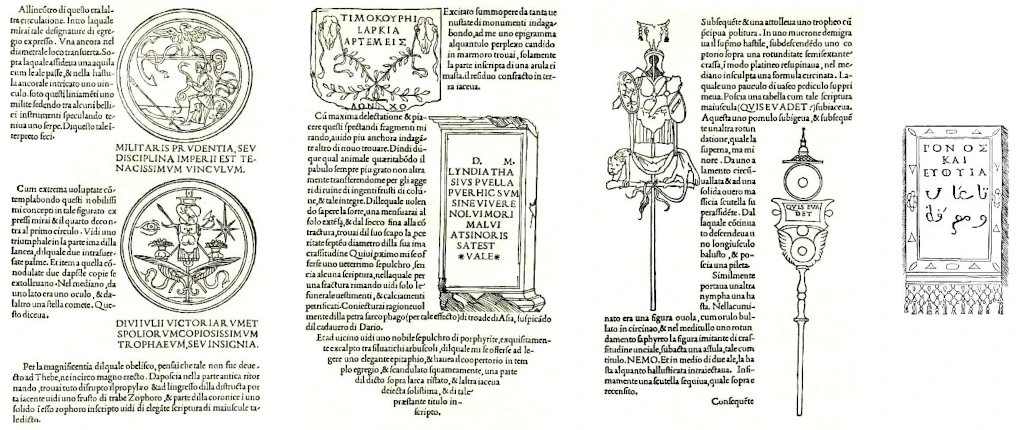 Allincõtro di questo tra lal-
tra circulatione. Intro laquale
mirai tale designature di egre
gio expresso. Vna ancora nel
diametrale loco transuersa. So
pra laquale assideua una aquila
cum le ale passe, & nella hastu
la ancorale intricato uno uin-
culo. soto questi liniamẽti uno
milite sedendo tra alcuni belli-
ci instrumenti speculando te-
niua uno serpe. Di questo tale i-
terpreto feci.
MILITARIS PRVDENTIA, SEV
DISCIPLINA IMPERII EST TE-
NACISSIMVM VINCVLVM.
Cum extrema uoluptate cõ-
templabondo questi nobilissi
mi concepti in tale figurato ex
pressi mirai & il quarto decon-
tra al primo circulo. Vidi uno
triumphale in la parte ima dilla
lancea, dilquale due intrasuer-
sate palme. Et item a quella cõ-
nodulate due dapsile copie se
extolleuano. Nel mediano, da
uno lato era uno oculo, & da-
laltro una stella comete. Que-
sto diceua.
DIVI IVLII VICTORIARVM ET
SPOLIORVM COPIOSISSIMVM
TROPHAEVM, SEV INSIGNIA.
Per la magnificentia dilquale obelisco, pensai che tale non fue deue-
cto ad Thebe, ne in circo magno erecto. Daposcia nella parte antica ritor
nando, trouai tuto disrupto il propylæo & ad lingresso dilla distructa por
ta iacente uidi uno frusto di trabe Zophoro, & parte dilla coronice i uno
solido & esso zophoro inscripto uidi di elegãte scriptura di maiuscule ta-
le dicto.
ΤΙΜΟΚΟΥΡΗΙ
ΛΑΡΚΙΑ
ΑΡΤΕΜΕΙΣ
Excitato summopere da tanta ue
nustate di monumenti indaga-
bondo, ad me uno epigramma
alquantulo perplexo candido
in marmoro trouai, solamente
la parte inscripta di una arula ri
masta. il residuo confracto in ter-
ra iaceua.
Cũ maxima delectatione & pia
cere questi spectandi fragmenti mi
rando, auido piu anchora indagã-
te altro di nouo trouare. Dindi di
que qual animale quæritabõdo il
D. M.
LYNDIA THA
SIVS PVELLA
PVER HIC SVM
SINE VIVERE
NOLVI MORI
MALVI
AT SI NORIS
SAT EST
VALE
pabulo sempre piu grato non altra
mente transferendome per gli agge
ri di ruine di ingenti frusti di colu-
ne, & tale integre. Dillequale uolen
do sapere la sorte, una mensurai al
solo extẽsa, & dal socco fina alla cõ
tractura, trouai dil suo scapo la, pce
ritate septẽo diametro dilla sua ima
crassitudine. Qui ui, pximo mi se of
ferse uno ueterrimo sepulchro, sen
cia alcuna scriptura, nellaquale per
una fractura rimando uidi solo le
funerale uestimenti, & calciamenti
petrificati. Coniecturai ragioneuol
mente dilla petra sarcophago (per tale effecto) di troade di Asia, suspicãdo
dil cadauero di Dario.
Et ad uicino uidi uno nobile sepulchro di porphyrite, exquisitamen-
te exculpto tra siluatichi arbuscoli, dilquale mi se offerse ad le-
gere uno elegante epitaphio, & haueua il coopertorio in tem
plo egregio & scandulato squameamente, una parte
dil dicto sopra larca ristato, & laltra iaceua
deiecta solistima, & di tale
præstante titulo in-
scripto.
Subsequẽte & una attolleua uno tropheo cũ
scipua politura. In uno mucrone demigra
ua il supmo hastile, subdescendẽdo uno co
ptorio sopra una rotunditate semisextante
crassa, i modo platineo resupinaua, nel me-
diano insculpta una formula circinata. La-
quale uno pauculo di uaseo pediculo suppri
meua. Poscia una tabella cum tale scriptura
maiuscula (QVIS EVADET?) subiaceua.
A questa uno pomulo subigeua, & subsequẽ
te unaltra rotun
datione, quale la
superna, ma mi
nore. Da uno a
lamento circũ
uallata & ad una
solida ouero ma
sficia scutella su
perassidẽte. Dal
laquale cõtinua
to descendeua u
no longiusculo
balusto, & po-
scia una pileta.
Similmente
portaua unaltra
nympha una ha
sta. Nella cui sum
nato era una figura ouola, cum orulo bul-
lato in circinao, & nel meditullo uno rotun
damento saphyreo la figura imitante di cras-
situdine unciale, subacta una assula, tale cum
titulo. NEMO. Et in medio di due ale, la ha
sta alquanto ballusticata intraiectaua. Infi-
mamente una scutella sequiua, quale sopra e
recensito.
Consequẽte
QVIS EVA
DET
ΓΟΝΟΣ
ΚΑΙ
ΕΤΟΥΙΑ